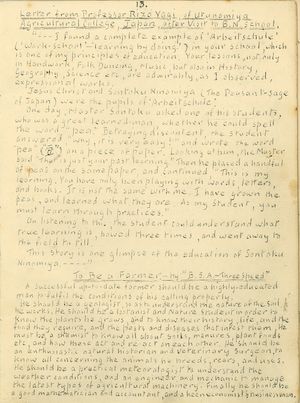 13.
Letter from Professor Rizo Yagi, of Utsunomiya
Agricultural College, Japan, after Visit to B.N. School.
"--- I found a complete example of 'Arbeitschule'
('Work-school'—learning by doing) in your school, which
is one of my principles of education. Your lessons, not only
in Handwork, Folk Dancing, Music, but also in History,
Geography, Science etc, are admirably, as I observed,
expressional works.
Jesus Christ and Sontoku Ninomiya (The Peasant-Sage
of Japan) were the pupils of 'Arbeitschule'.
One day, Master Sontoku asked one of his students,
who was a great learned man, whether he could spell
the word "pea". Betraying discontent, the student
answered "Why, it is very easy!" and wrote the word
"pea" on a piece of paper. Looking at him, the Master
said "That is just your past learning." Then he placed a handful
of peas on the same paper, and continued, "This is my
learning. You have only been playing with words, letters,
and books. It is not the same with me. I have grown the
peas, and learned what they are. As my student, you
must learn through practices."
On listening to this, the student could understand what
true learning is, bowed three times, and went away to
the field to till.
This story is one glimpse of the education of Sontoku
Ninomiya -----"
To Be a Farmer—by "B.S.A-Three Speed"
A successful up-to-date farmer should be a highly-educated
man to fulfil the conditions of his calling properly.
He should be a geologist, to understand the nature of the soil
he works. He should be a botanist and Nature student in order to
know the plants he grows, and to know their history, life, and the
food they require, and the pests and diseases that infest them. He
must be a chemist to know all about soils, manures, plant foods
etc, and how these act and re-act on each other. He should be
an enthusiastic natural historian and veterinary surgeon, to
know all concerning the animals he breeds, rears, and uses.
He should be a practical meteorologist to understand the
weather conditions, and an engineer and mechanic to manage
the latest types of agricultural machinery; finally he should be
a good mathematician and accountant, and a keen economist &